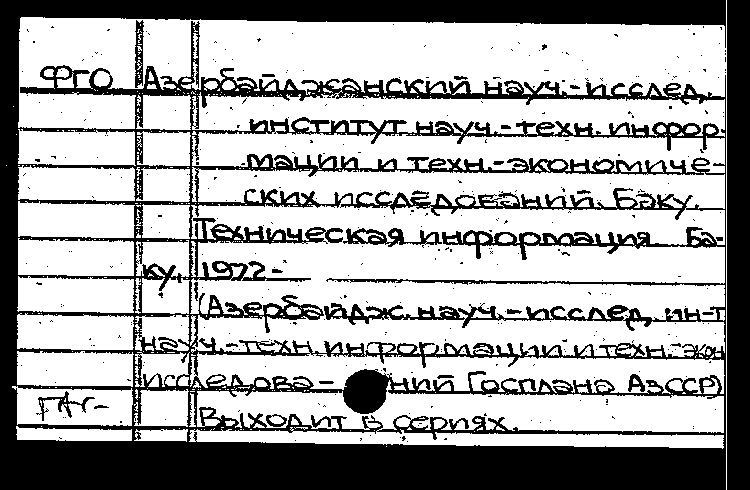 ФГО Азербайджанский науч.-исслед.
институт науч.-техн. инфор-
мации и техн.-экономиче-
ских исследований. Баку.
Техническая информация Ба-
ку, 1972-
(Азербайдж. науч.-исслед. ин-т
науч.-техн. информации и техн.-экон
исследова- ний Госплана АзССР)
Выходит в сериях.